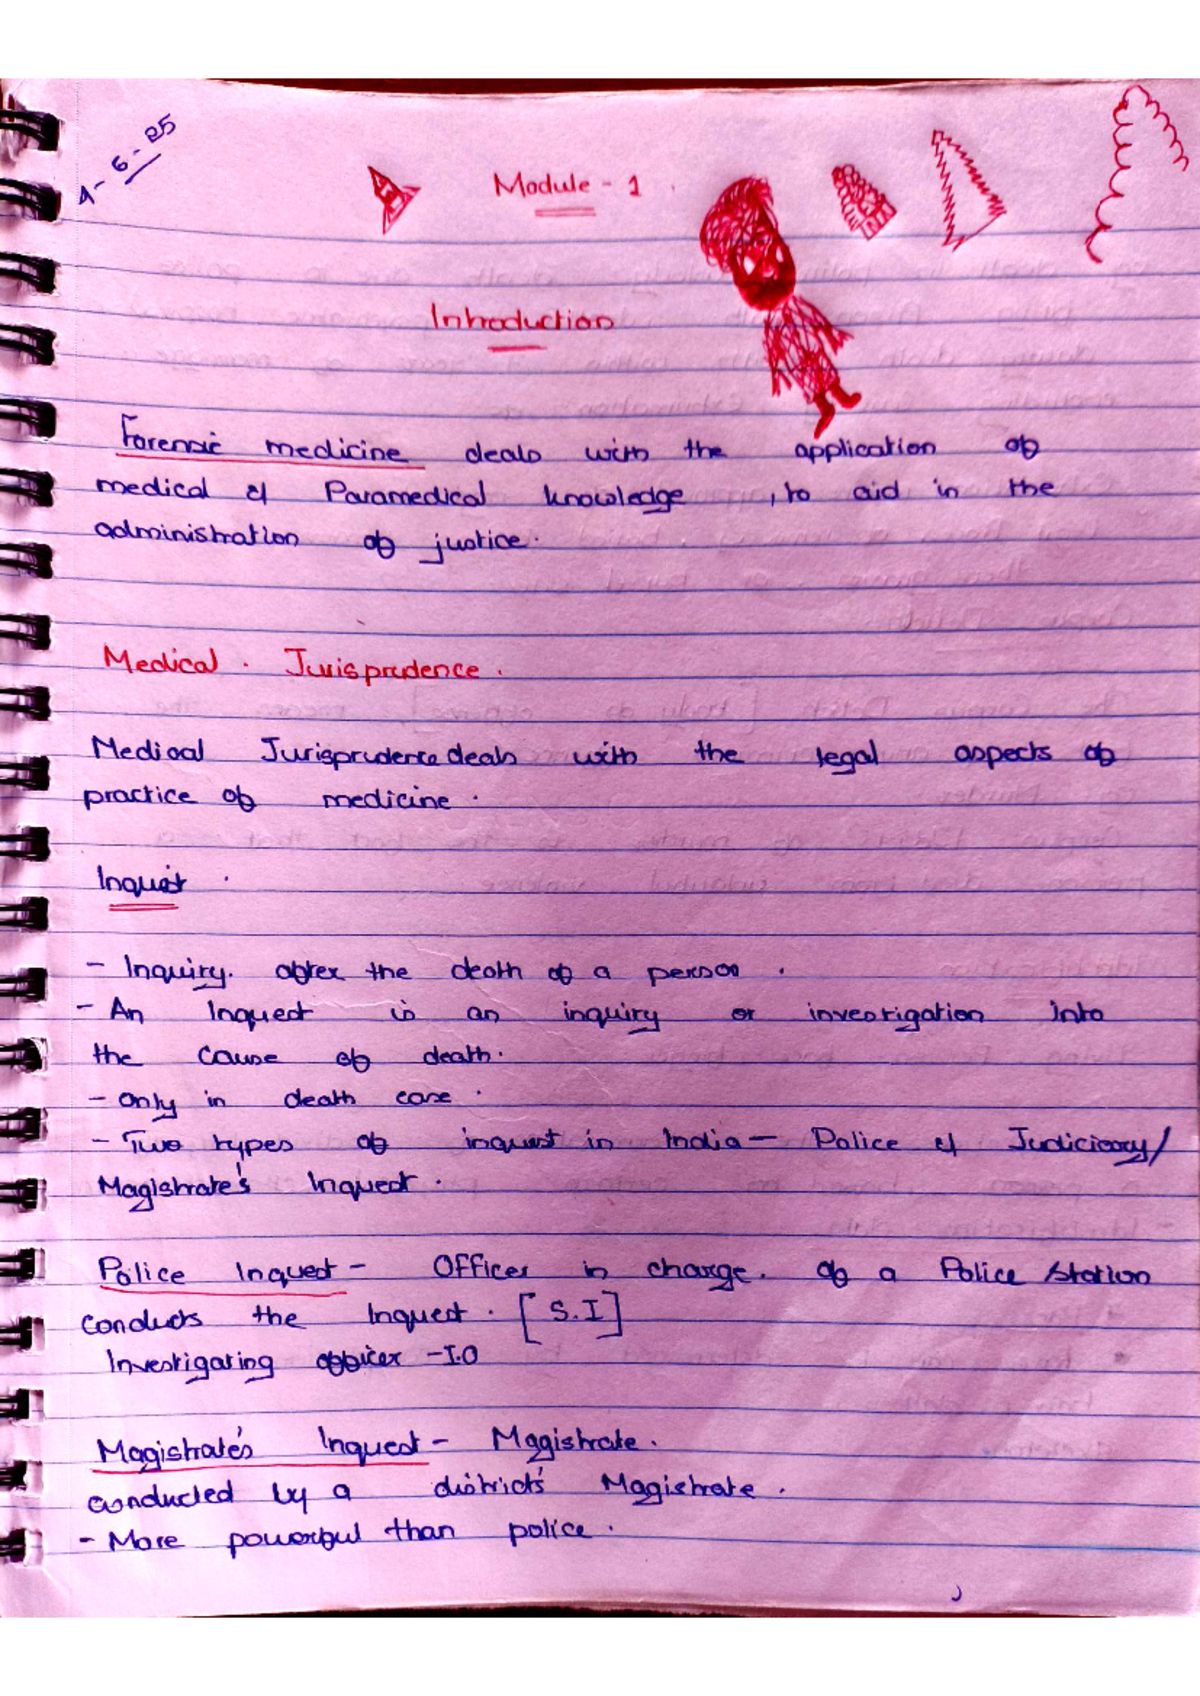 4-6-25
Module - 1
Introduction
Forensic medicine deals with the application of
medical & Paramedical knowledge , to aid in the
administration of justice.
Medical . Jurisprudence .
Medical Jurisprudence deals with the legal aspects of
practice of medicine .
Inquest .
- Inquiry. after the death of a person .
- An Inquest is an inquiry or investigation into
the cause of death.
- Only in death case .
- Two types of inquest in India - Police & Judiciary/
Magistrate's Inquest .
Police Inquest - Officer in charge. of a Police Station
conducts the Inquest . [ S.I ]
Investigating officer - I.O
Magistrate's Inquest - Magistrate .
conducted by a district's Magistrate .
- More powerful than police .